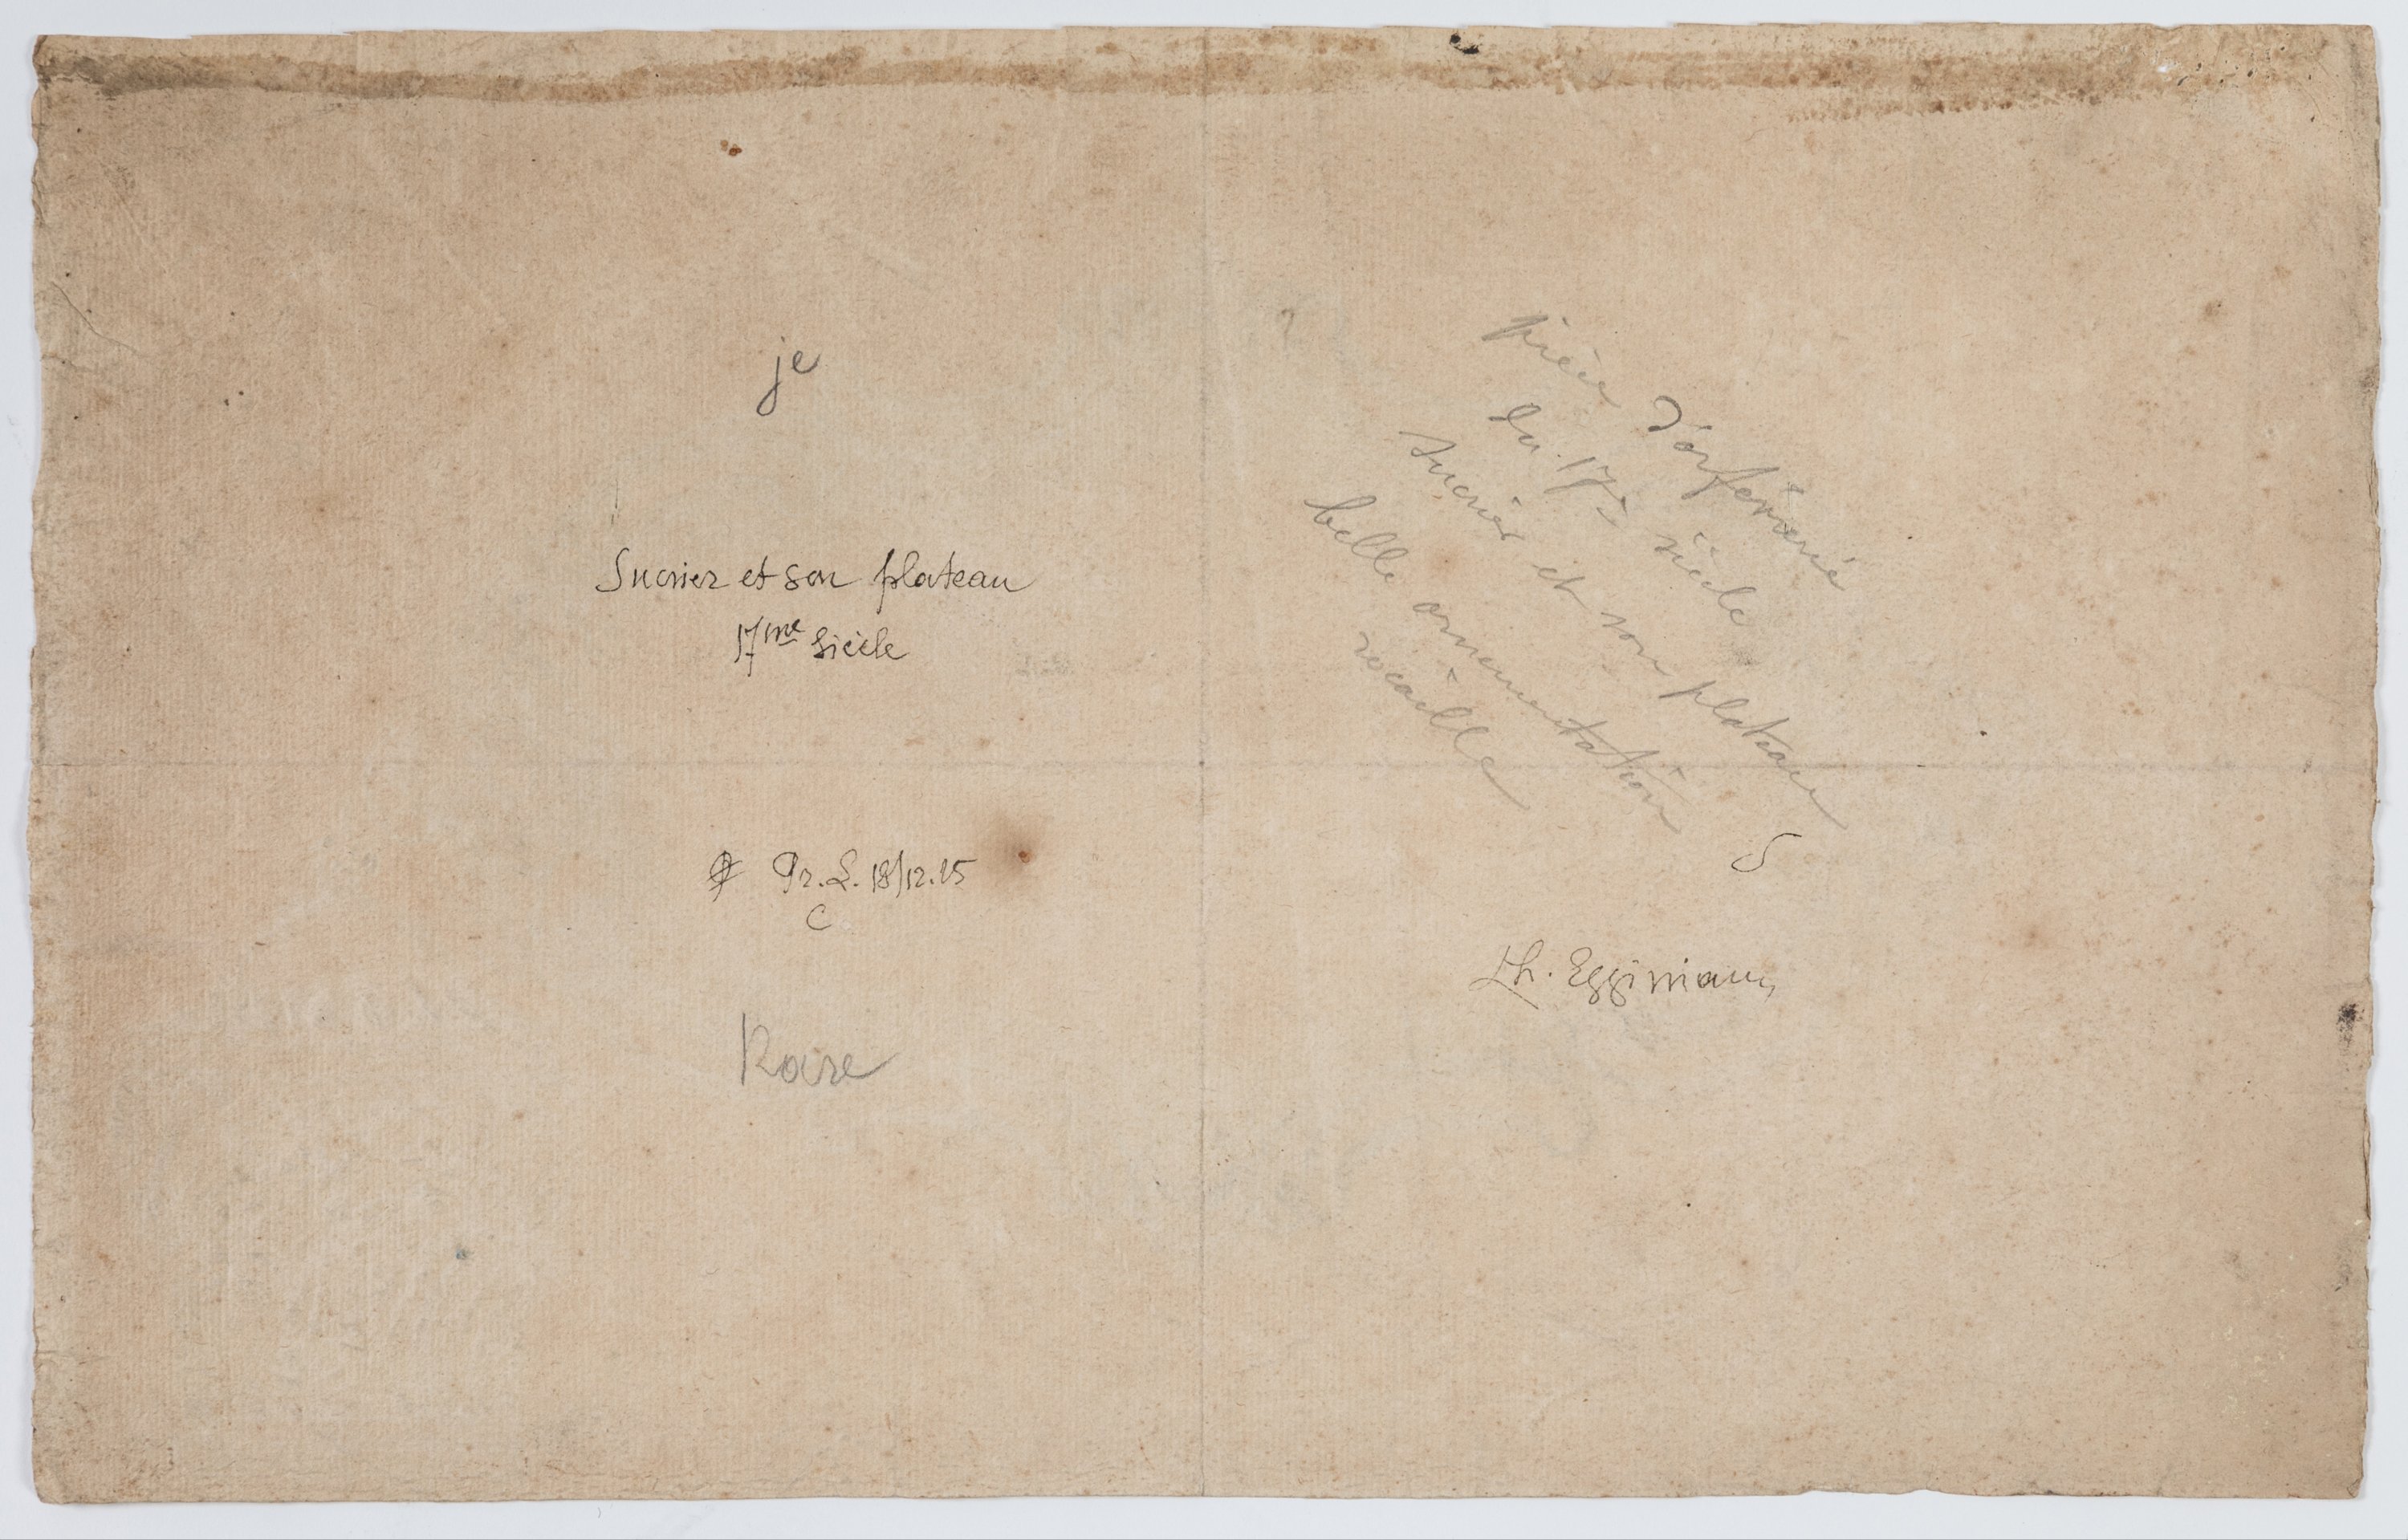 je
Sucrier et son plateau
17me siècle
Pr. L. 18/12.15
C
Rare
pièce d'orfèvrerie
du 17e siècle
sucrier et son plateau
belle ornementation
rocaille
S
Ch. Eggimann